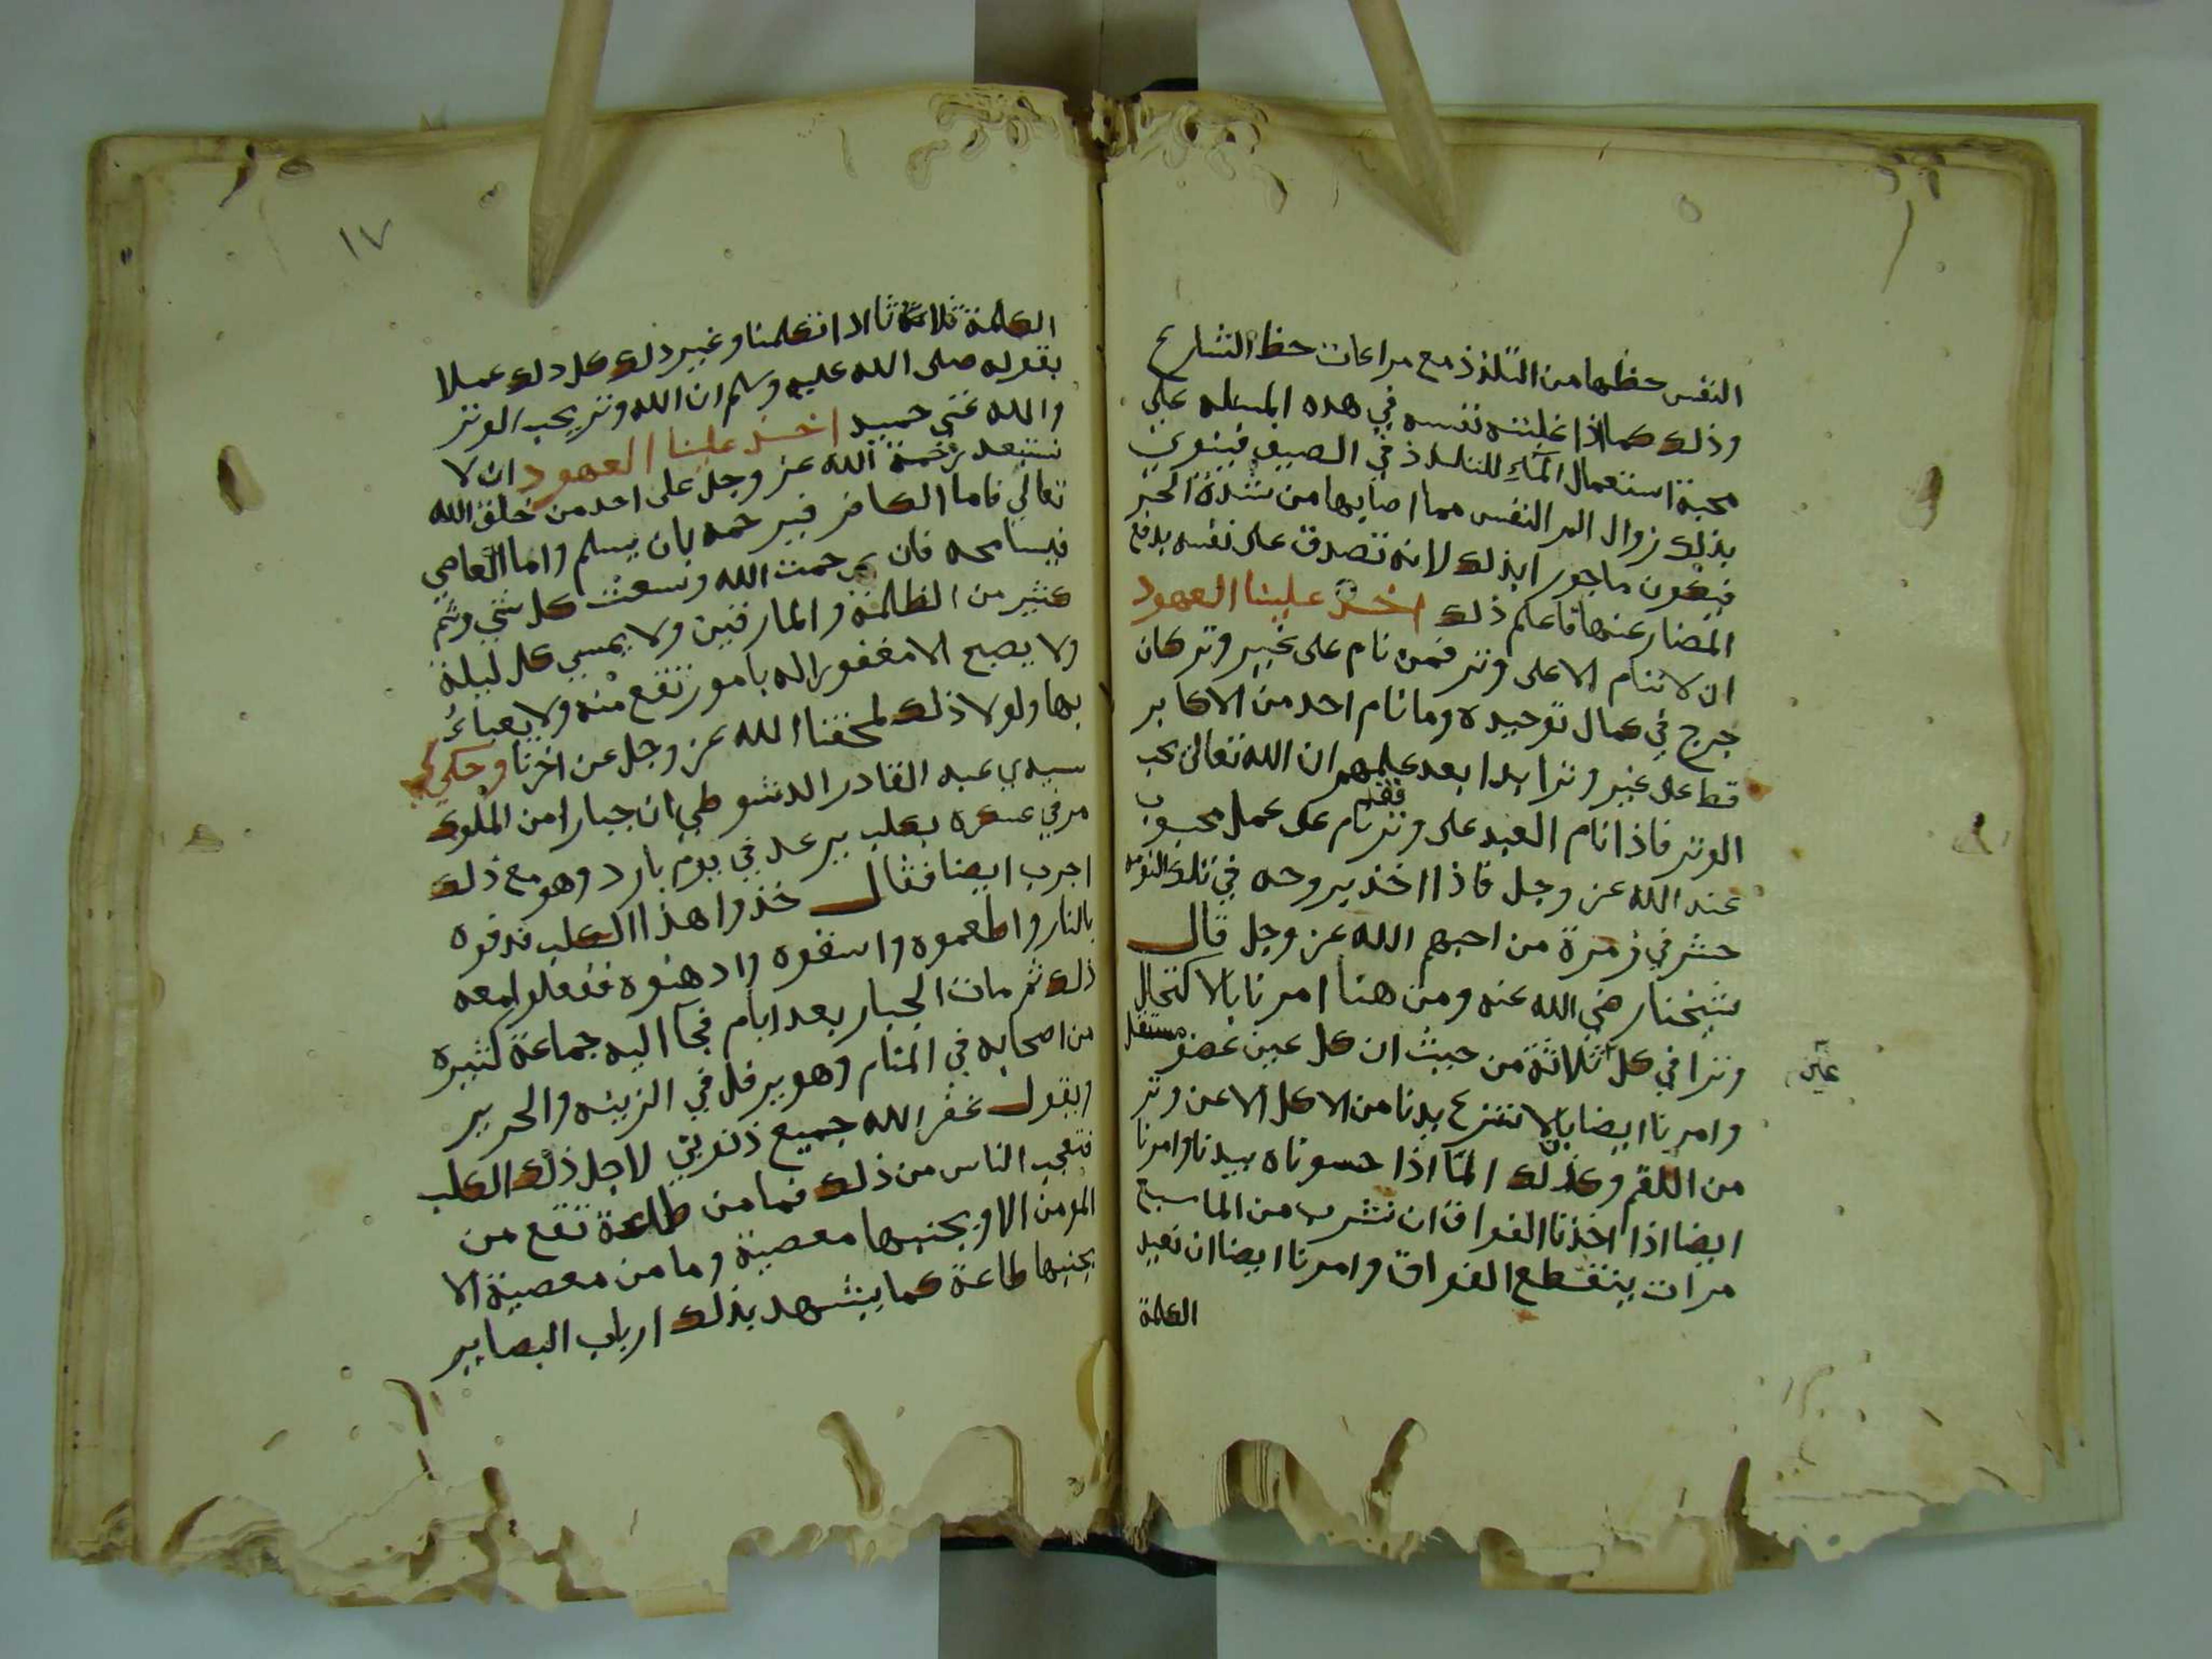 النفس حظها من التلذذ مع مراعات حظ الشارع
وذلك كما اذا غلبته نفسه في هذه المسئله علي
محبة استعمال الماء للتلذذ في الصيف فينوي
بذلك زوال الم النفس مما اصابها من شدة الحر
فيكون ماجورا بذلك لانه تصدق على نفسه بدفع
المضار عنها فاعلم ذلك اخذ علينا العهود
ان لا ننام الا على وتر فمن نام على غير وتر كان
جرح في كمال توحيده وما نام احد من الاكابر
قط على غير وتر ابدا بعد علمهم ان الله تعالى يحب
الوتر فاذا نام العبد على وتر فقد نام على عمل محبوب
عند الله عز وجل فاذا اخذ بروحه في تلك النومه
حشر في زمرة من احبهم الله عز وجل قال
شيخنا رضي الله عنه ومن هنا امرنا بالاكتحال
وترا في كل عين ثلاثة من حيث ان كل عين عضو مستقل
وامرنا ايضا بان لا ننزع يدنا من الاكل الا عن وتر
من اللقم وكذلك الما اذا حسوناه بيدنا وامرنا
ايضا اذا اخذنا الفواق ان نشرب من الما سبع
مرات ينقطع الفواق وامرنا ايضا ان نعيد
الكلمة
١٧
الكلمة ثلاثة ثا اذا تكلمنا وغير ذلك كل ذلك عملا
بقوله صلى الله عليه وسلم ان الله وتر يحب الوتر
والله غني حميد اخذ علينا العهود ان لا
نستبعد رحمة الله عز وجل على احد من خلق الله
تعالي فاما الكافر فيرحمه بان يسلم واما العاصي
فيسامحه فان رحمت الله وسعت كل شي وثم
كثير من الظلمة والمارقين ولا يمسي كل ليلة
ولا يصبح الا مغفورا له بامور تقع منه ولا يعباء
بها ولولا ذلك لمحقنا الله عز وجل عن اخرنا وحكي لي
سيدي عبد القادر الدشوطي ان جبارا من الملوك
مر في عسكره بكلب يرعد في يوم بارد وهو مع ذلك
اجرب ايضا فقال خذوا هذا الكلب فدفوه
بالنار واطعموه واسقوه وادهنوه ففعلوا معه
ذلك ثم مات الجبار بعد ايام فجا اليه جماعة كثيره
من اصحابه في المنام وهو يرفل في الزينه والحرير
ويقول غفر الله جميع ذنوبي لاجل ذلك الكلب
فتعجب الناس من ذلك فما من طاعة تقع من
المومن الا وبجنبها معصية وما من معصية الا
بجنبها طاعة كما يشهد بذلك ارباب البصاير